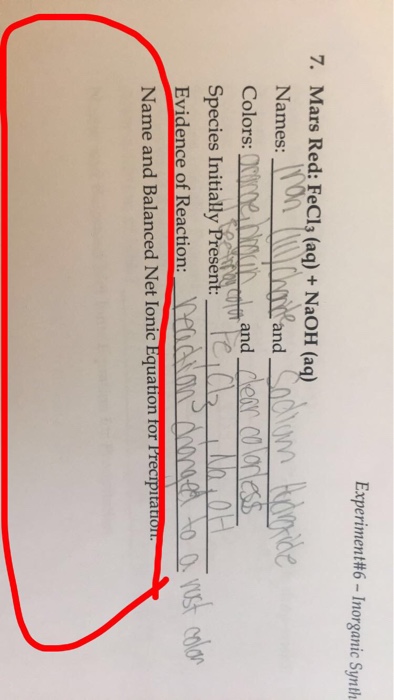 Experiment#6 – Inorganic Synth
7. Mars Red: FeCl₃ (aq) + NaOH (aq)
Names: Iron (III) chloride and Sodium Hydroxide
Colors: orange, brown and clear colorless
Species Initially Present: Fe, Cl₃, Na, OH
Evidence of Reaction: reactions changed to a rust color
Name and Balanced Net Ionic Equation for Precipitation: